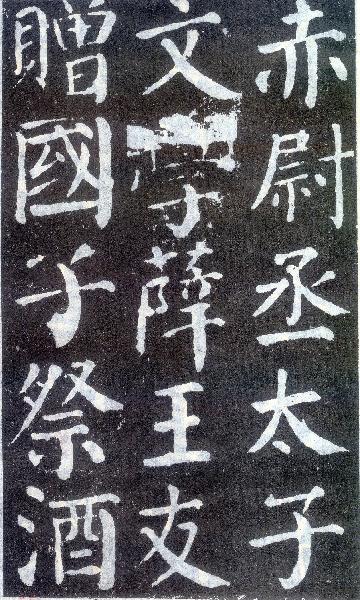 赤尉丞太子
文學薛王友
贈國子祭酒